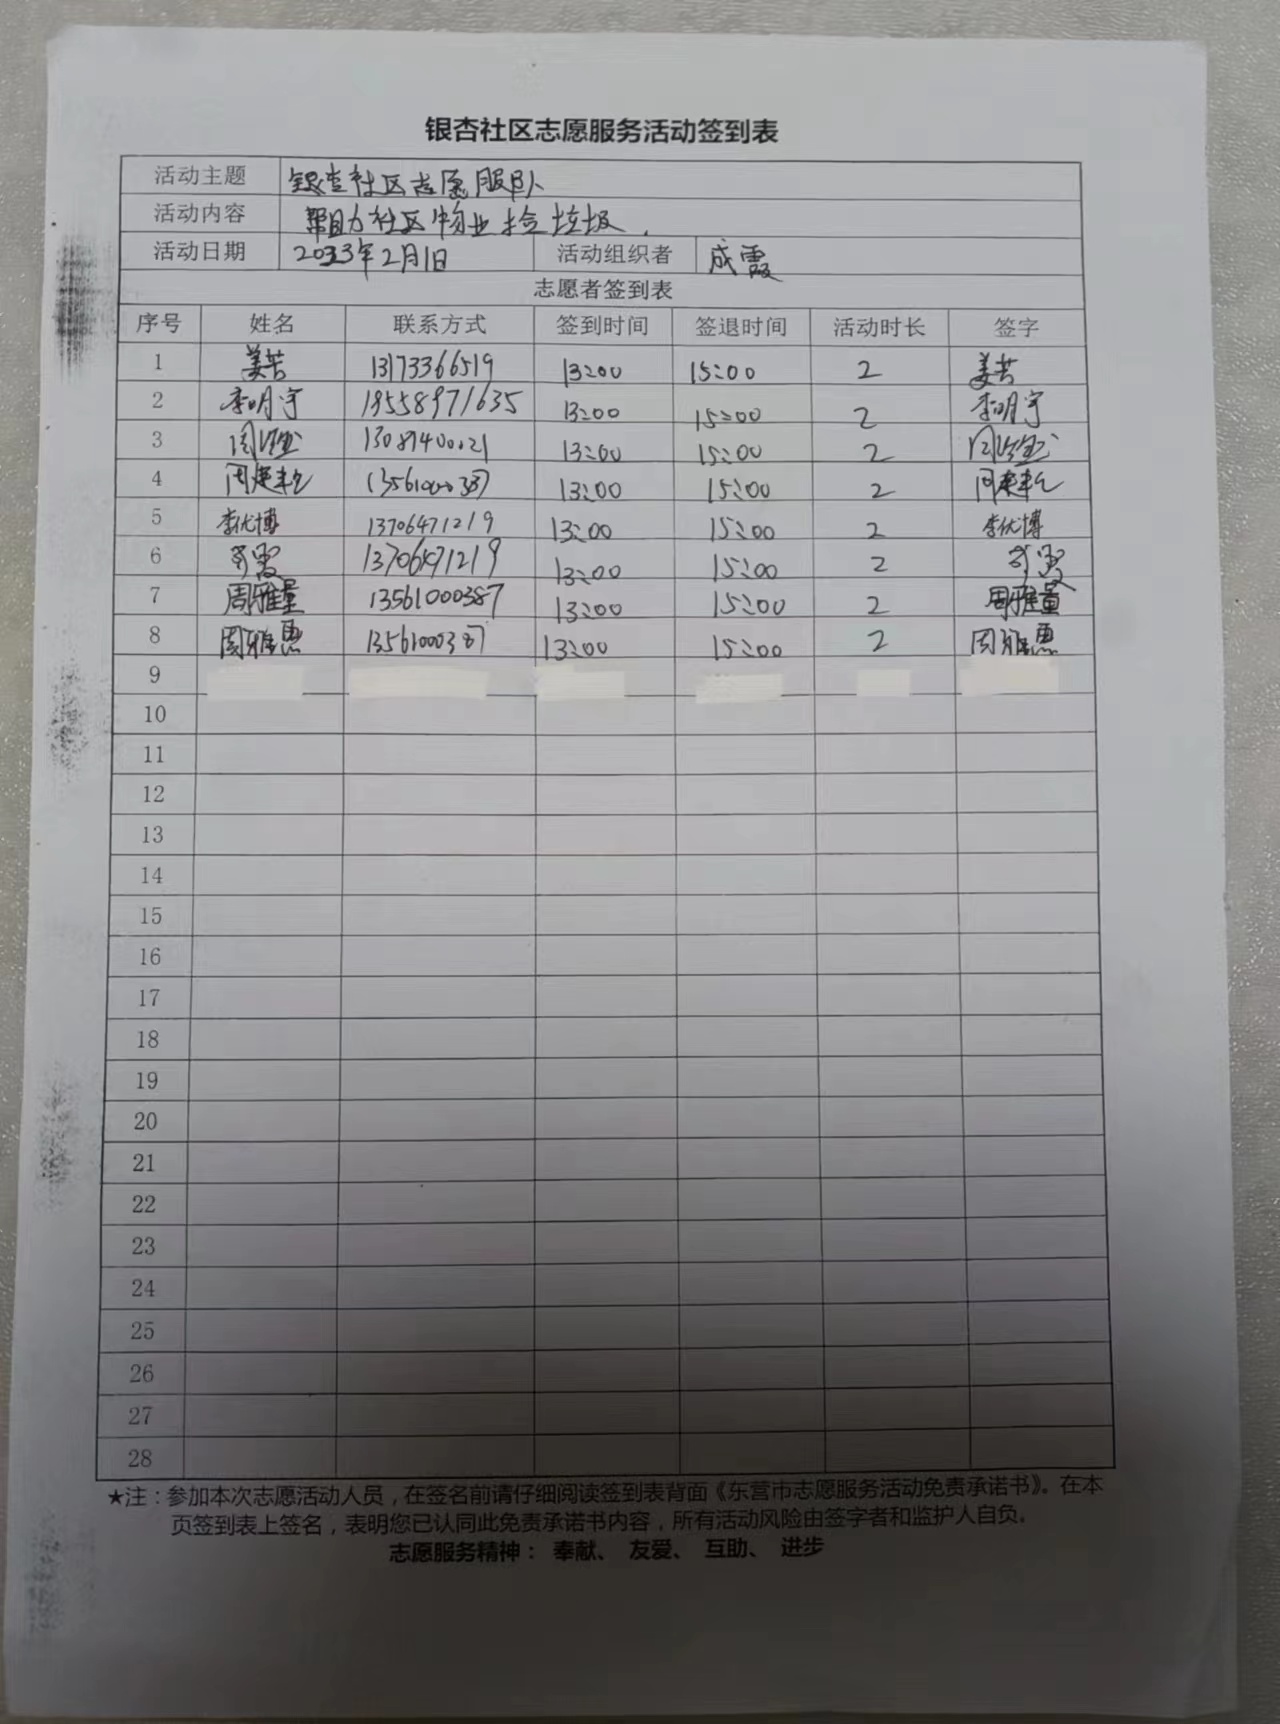 银杏社区志愿服务活动签到表
活动主题 银杏社区志愿服队
活动内容 帮助社区物业捡垃圾.
活动日期 2023年2月1日 活动组织者 成霞
志愿者签到表
序号 姓名 联系方式 签到时间 签退时间 活动时长 签字
1 姜芸 13173366519 13:00 15:00 2 姜芸
2 李明宇 13:00 15:00 2 李明宇
3 13:00 15:00 2
4 13561000387 13:00 15:00 2
5 李优博 13706471219 13:00 15:00 2 李优博
6 13706471219 13:00 15:00 2
7 周雅量 13561000387 13:00 15:00 2 周雅量
8 周雅惠 13561000387 13:00 15:00 2 周雅惠
9
10
11
12
13
14
15
16
17
18
19
20
21
22
23
24
25
26
27
28
★注：参加本次志愿活动人员，在签名前请仔细阅读签到表背面《东营市志愿服务活动免责承诺书》。在本
页签到表上签名，表明您已认同此免责承诺书内容，所有活动风险由签字者和监护人自负。
志愿服务精神： 奉献、 友爱、 互助、 进步